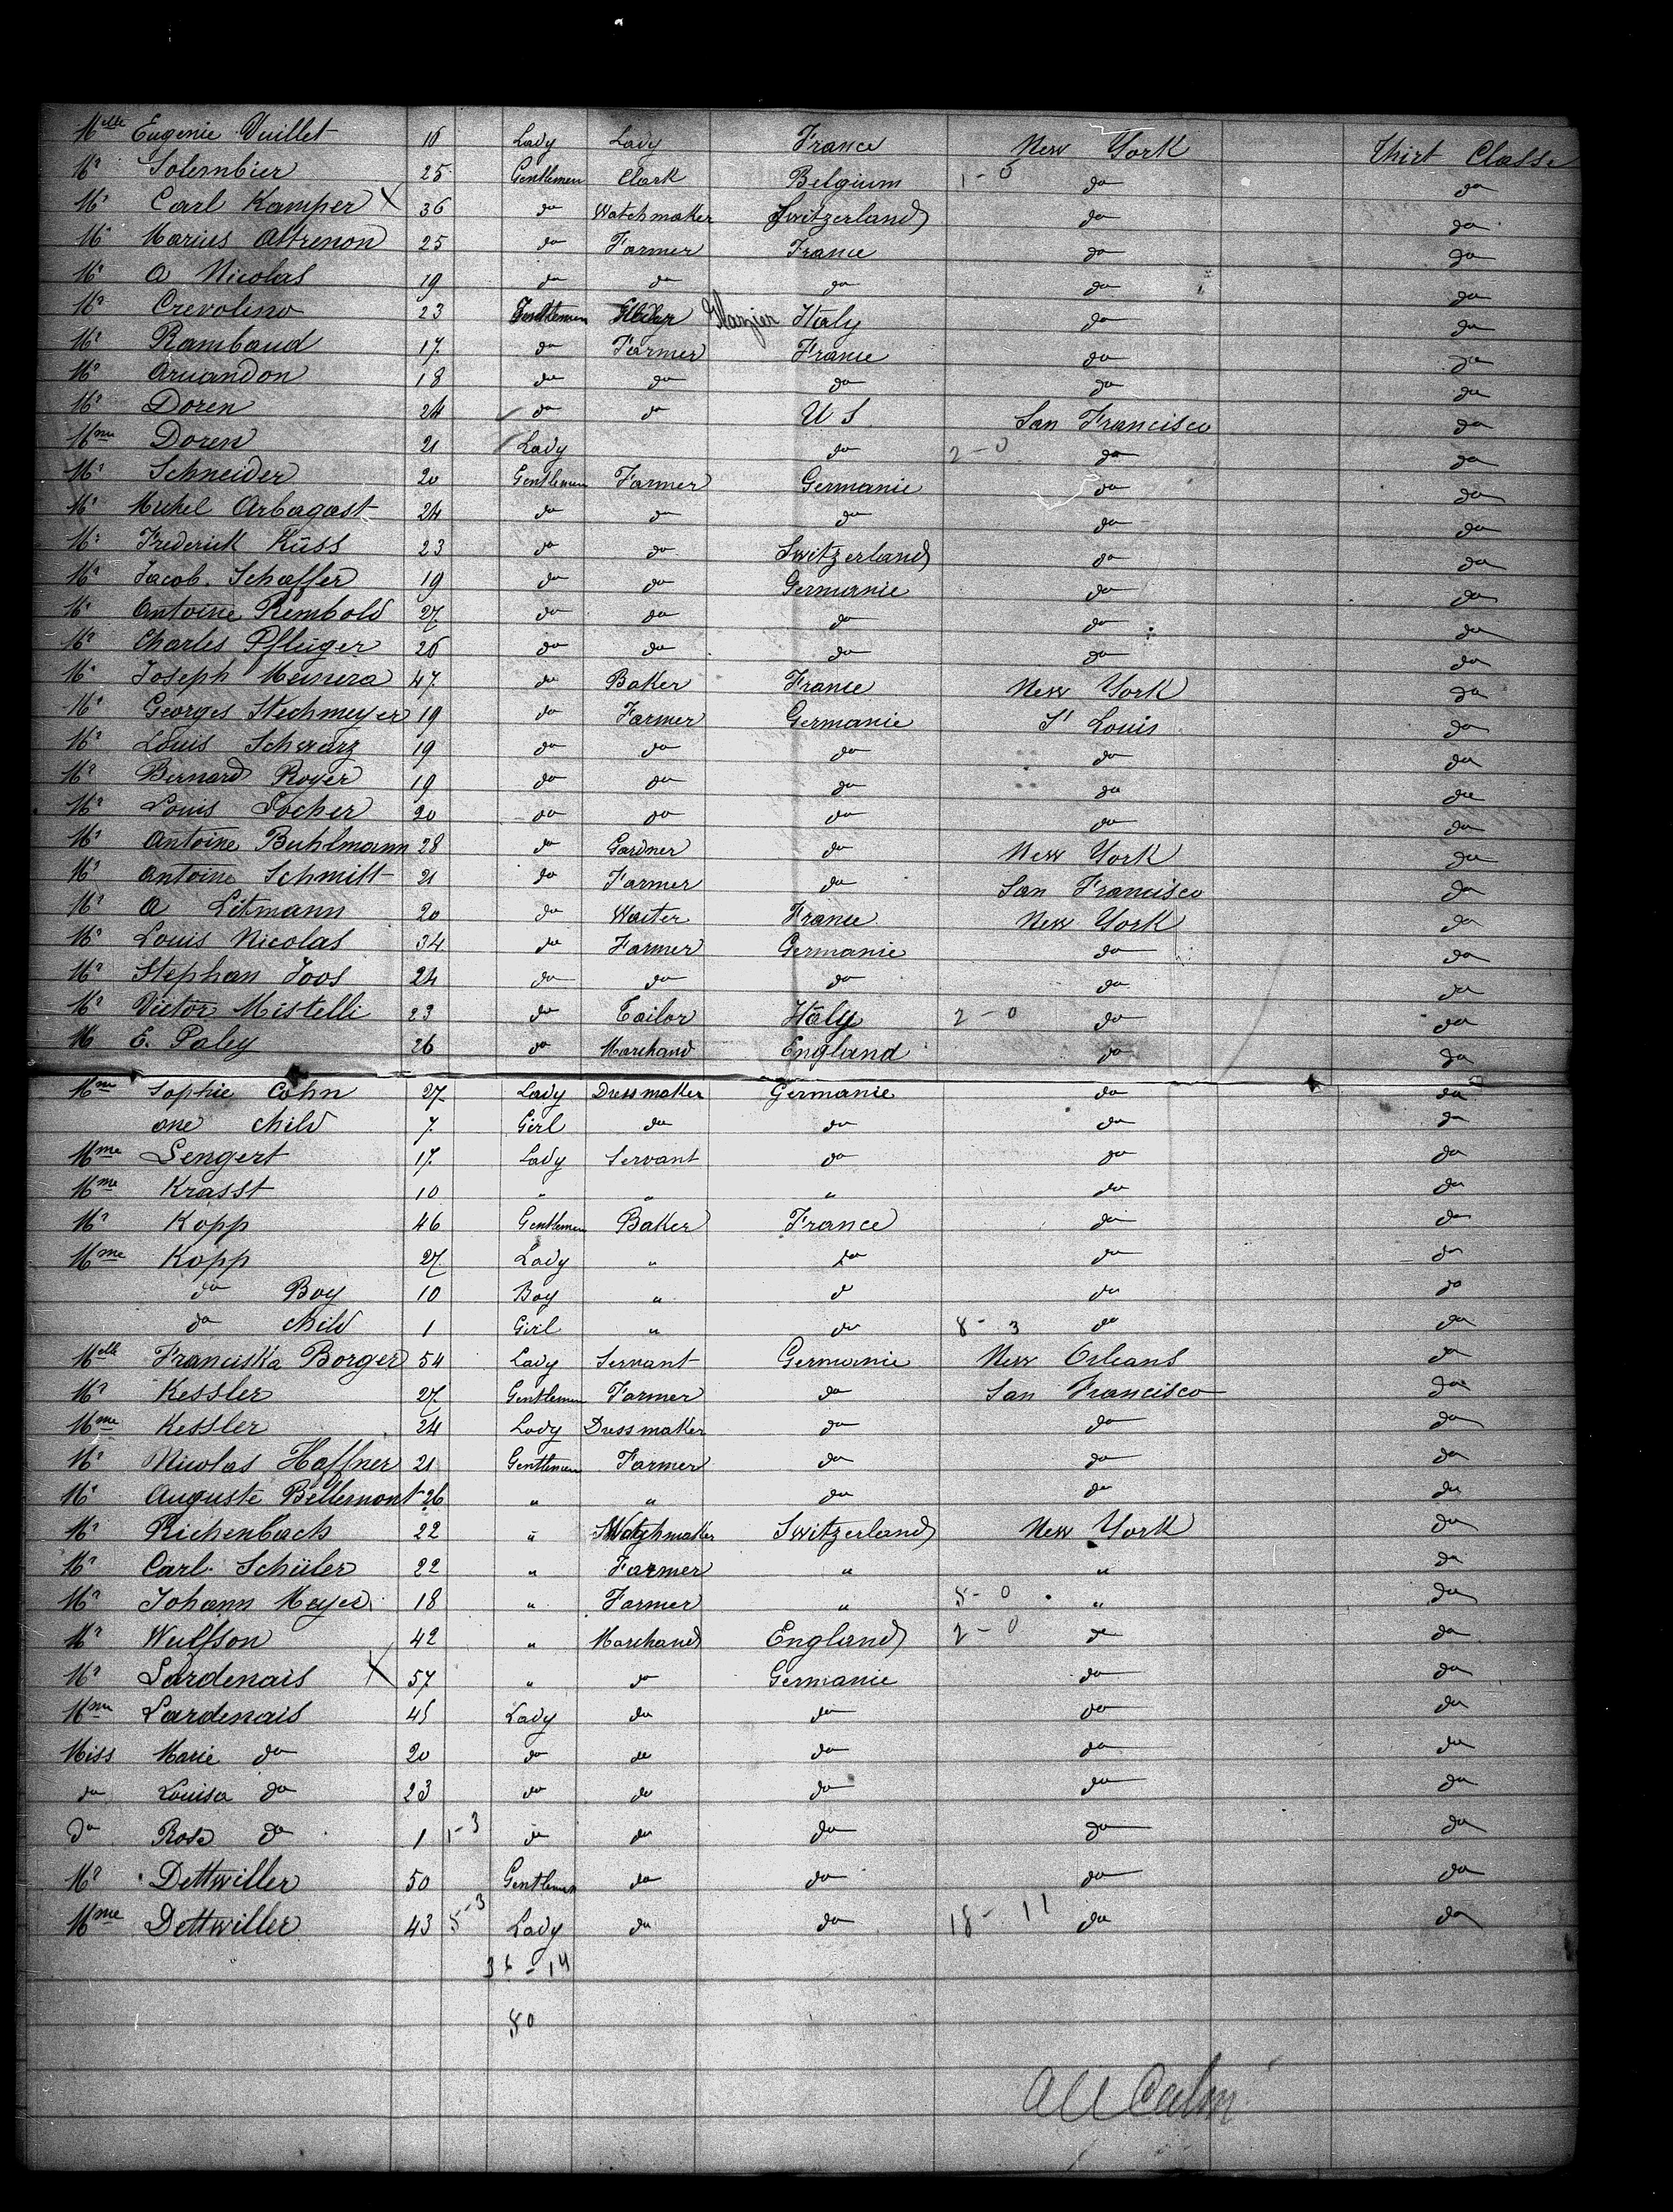 Melle Eugenie Vuillet 16 Lady Lady France New York Thirt Classe
Mr Solembier 25 Gentlemen Clark Belgium 1-0 do do
Mr Carl Kamper X 36 do Watchmaker Switzerland do do
Mr Marius Attrenon 25 do Farmer France do do
Mr A Nicolas 19 do do do do do
Mr Crevolino 23 Gentlemen Glazier Italy do do
Mr Rambaud 17 do Farmer France do do
Mr Aruandon 18 do do do do do
Mr Doren 24 do do U S San Francisco do
Mme Doren 21 Lady do 2-0 do do
Mr Schneider 20 Gentlemen Farmer Germanie do do
Mr Michel Arbogast 24 do do do do do
Mr Frederick Küss 23 do do Switzerland do do
Mr Jacob Schaffer 19 do do Germanie do do
Mr Antoine Rembold 27 do do do do do
Mr Charles Pfleiger 26 do do do do do
Mr Joseph Meinera 47 do Baker France New York do
Mr Georges Stechmeyer 19 do Farmer Germanie St Louis do
Mr Louis Schwarz 19 do do do do do
Mr Bernard Royer 19 do do do do do
Mr Louis Locher 20 do do do do do
Mr Antoine Buhlmann 28 do Gardner do New York do
Mr Antoine Schmitt 21 do Farmer do San Francisco do
Mr A Litmann 20 do Waiter France New York do
Mr Louis Nicolas 34 do Farmer Germanie do do
Mr Stephan Joos 24 do do do do do
Mr Victor Mistelli 23 do Tailor Italy 2-0 do do
M E. Paley 26 do Marchand England do do
Mme Sophie Cohn 27 Lady Dressmaker Germanie do do
one child 7 Girl do do do do
Mme Lengert 17 Lady Servant do do do
Mme Krasst 10 " " " do do
Mr Kopp 46 Gentlemen Baker France do do
Mme Kopp 27 Lady " do do do
do Boy 10 Boy " d do do
do child 1 Girl " do 8-3 do do
Melle Franciska Borger 54 Lady Servant Germanie New Orleans do
Mr Kessler 27 Gentlemen Farmer do San Francisco do
Mme Kessler 24 Lady Dressmaker do do do
Mr Nicolas Haffner 21 Gentlemen Farmer do do do
Mr Auguste Bellemont 26 " " do do do
Mr Richenbach 22 " Watchmaker Switzerland New York do
Mr Carl Schüler 22 " Farmer " " do
Mr Johann Meyer 18 " Farmer " 5-0 " do
Mr Wulfson 42 " Marchand England 2-0 do do
Mr Lardenais X 57 " do Germanie do do
Mme Lardenais 45 Lady do do do do
Miss Marie do 20 do do do do do
do Louisa do 23 do do do do do
do Rose do 1 1-3 do do do do do
Mr Dettwiller 50 Gentlemen do do do do
Mme Dettwiller 43 5-3 Lady do do 18-11 do do
36-14
50